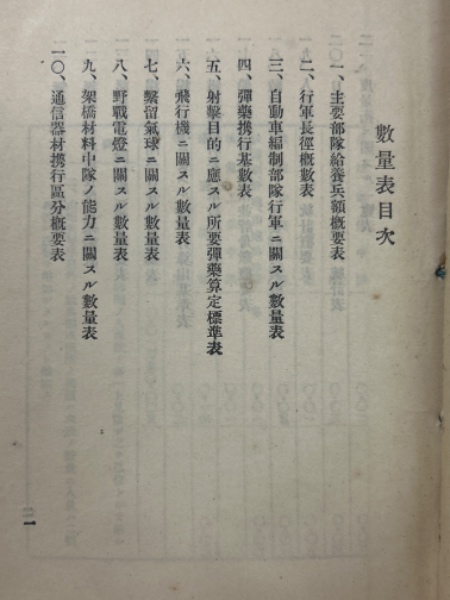 數量表目次
一、主要部隊給養兵額概要表
二、行軍長徑概數表
三、自動車編制部隊行軍ニ關スル數量表
四、彈藥携行基數表
五、射擊目的ニ應スル所要彈藥算定標準表
六、飛行機ニ關スル數量表
七、繫留氣球ニ關スル數量表
八、野戰電燈ニ關スル數量表
九、架橋材料中隊ノ能力ニ關スル數量表
一〇、通信器材携行區分概要表